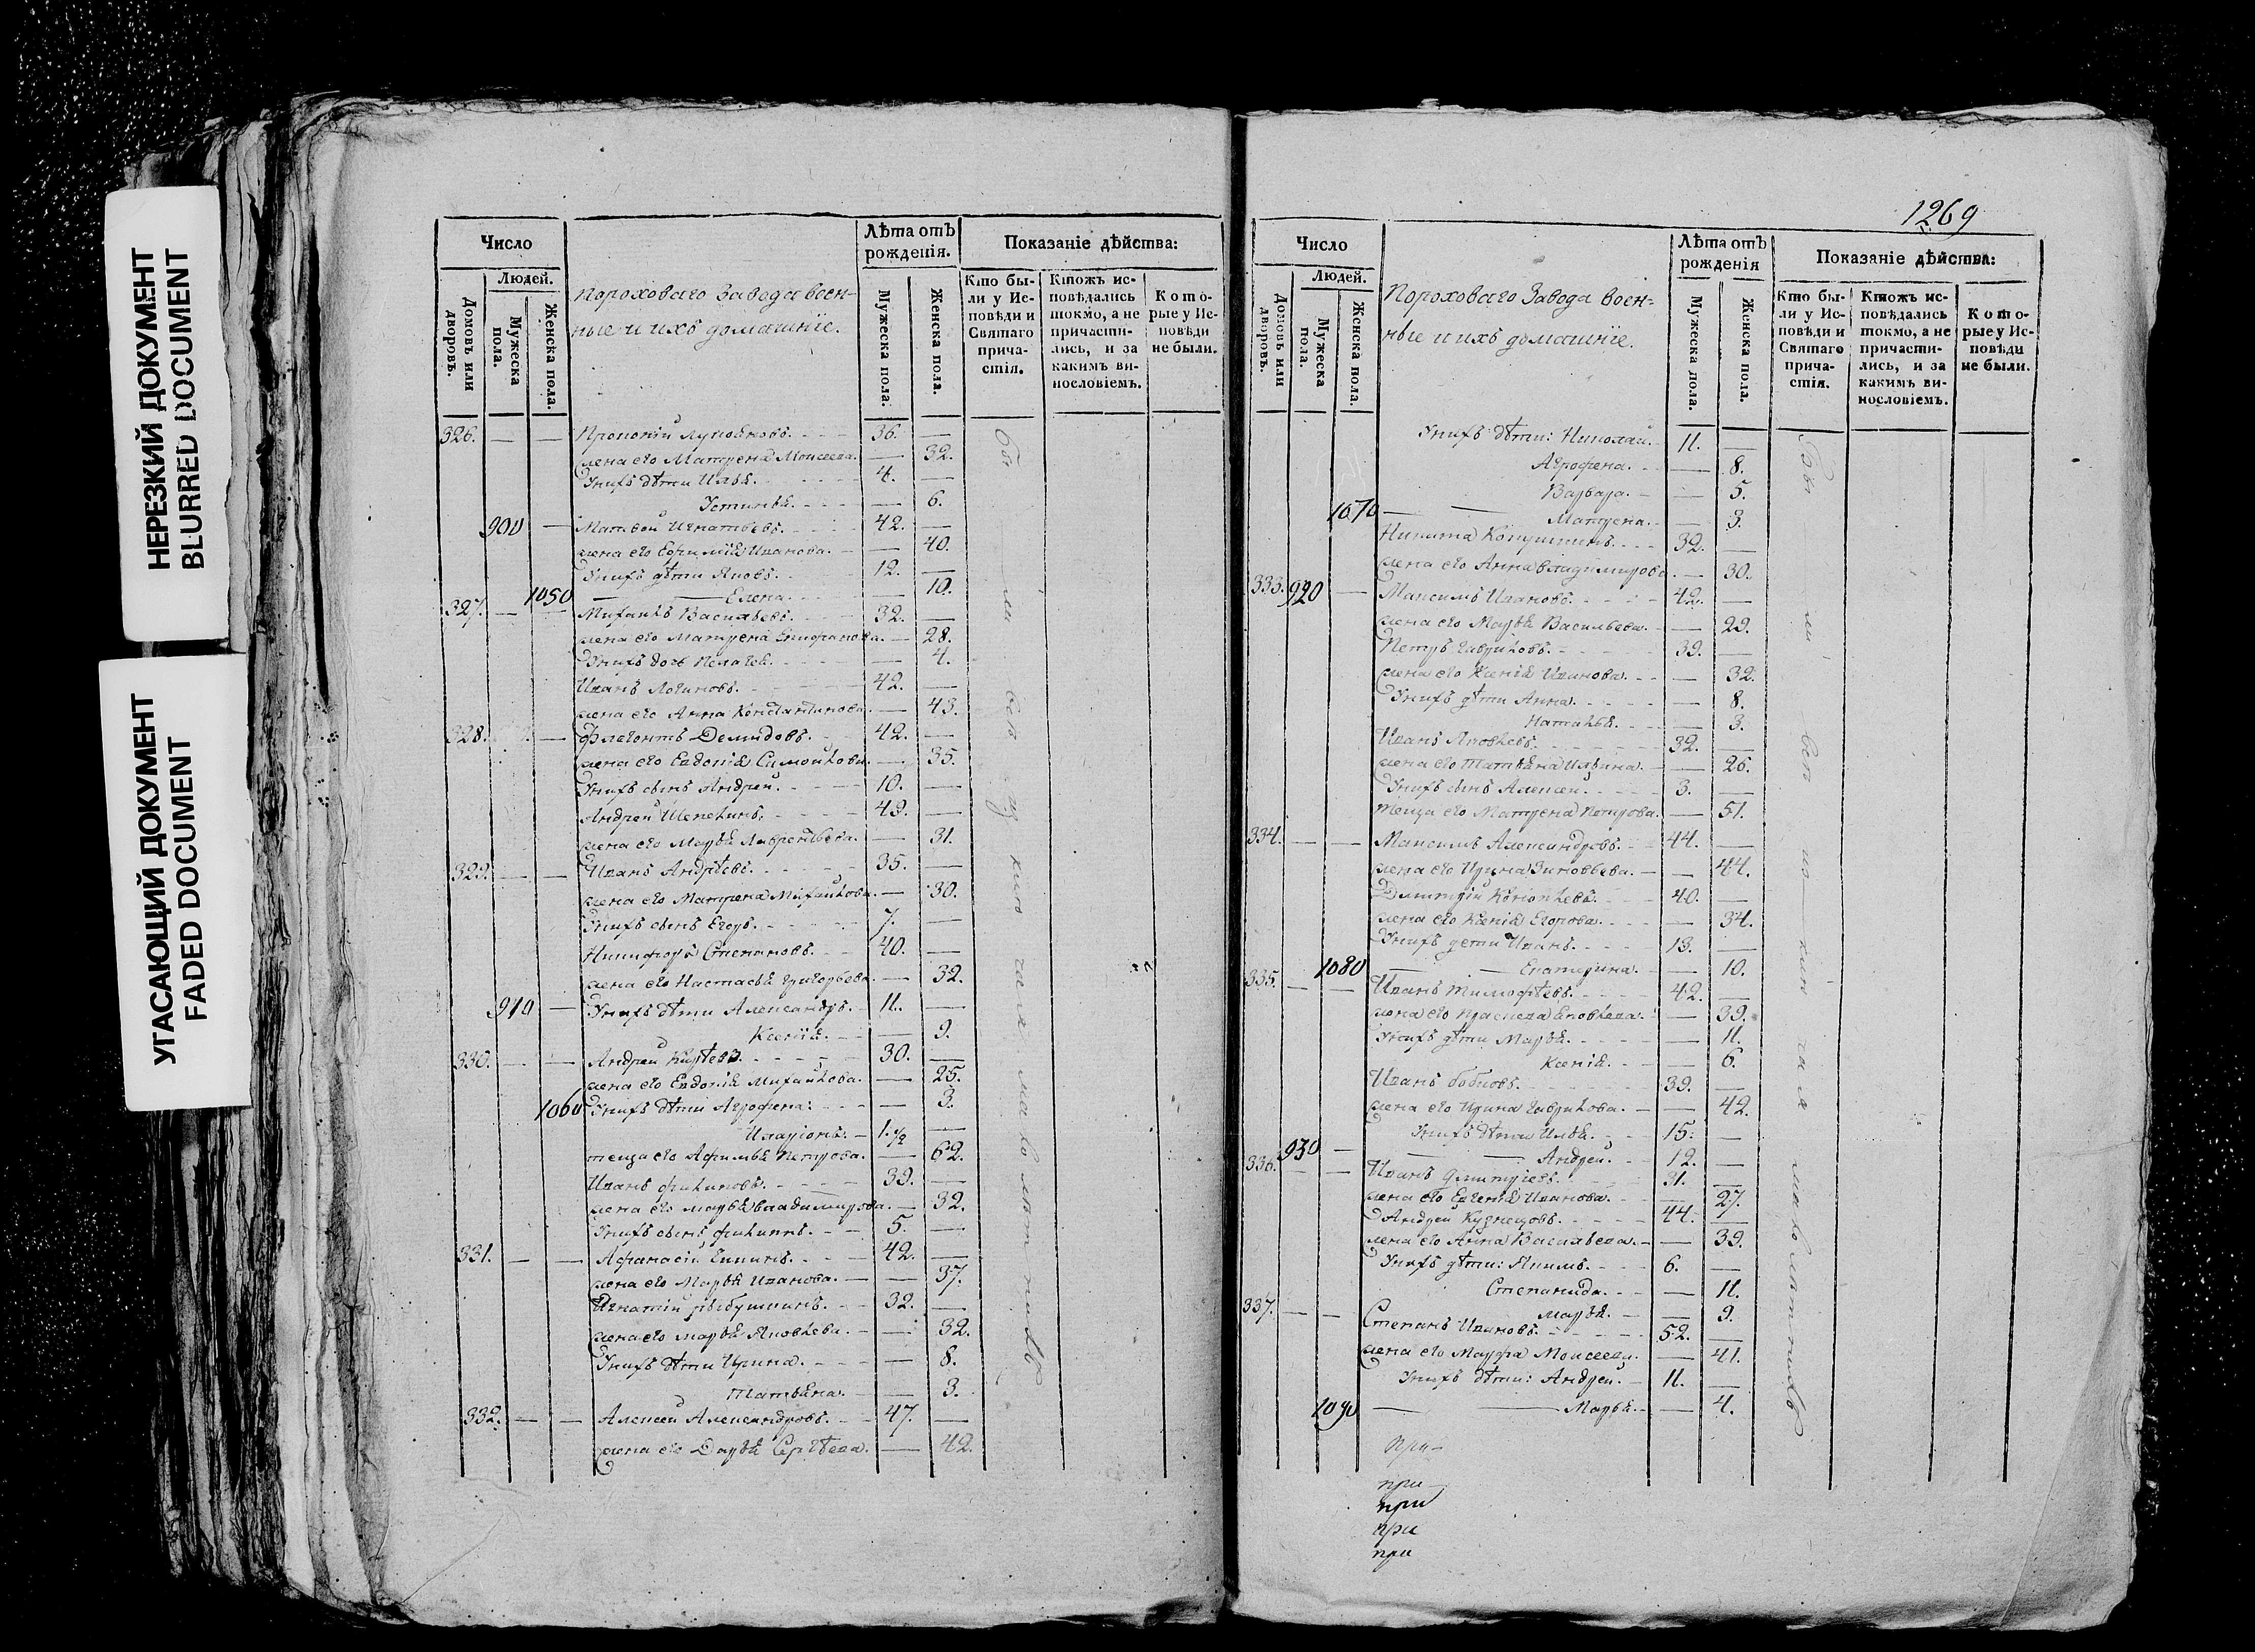 НЕРЕЗКИЙ ДОКУМЕНТ
BLURRED DOCUMENT
УГАСАЮЩИЙ ДОКУМЕНТ
FADED DOCUMENT
Число
Людей.
Домовъ или дворовъ.
Мужеска пола.
Женска пола.
Пороховаго Завода воен-
ные и ихъ домашніе.
Лѣта отъ рожденія.
Мужеска пола.
Женска пола.
Показаніе дѣйства:
Кто бы-
ли у Ис-
повѣди и
Святаго
прича-
стія.
Ктожъ ис-
повѣдались
токмо, а не
причасти-
лись, и за
какимъ ви-
нословіемъ.
Кото-
рые у Ис-
повѣди
не были.
326. — — 36. —
жена его Матрена Моисеева. — 32.
Унихъ дѣти Илья. 4. —
Устинья. — 6.
900 — Матвей Игнатьевъ. 42. —
жена его Ефимія Иванова. — 40.
Унихъ дѣти Яковъ. 12. —
1050 — Елена. — 10.
327. — — Михаилъ Васильевъ. 32. —
жена его Матрена — 28.
Унихъ дочь Пелагея. — 4.
Иванъ Логиновъ. 42. —
жена его Анна Константинова. — 43.
328. — Флегонтъ Демидовъ. 42. —
жена его Евдокія Самойлова. — 35.
Унихъ сынъ Андрей. 10. —
Андрей Шепелинъ. 43. —
жена его Марья Лаврентьева. — 31.
329. — — Иванъ Андрѣевъ. 35. —
жена его Матрена Михайлова. — 30.
Унихъ сынъ Егоръ. 7. —
Никифоръ Степановъ. 40. —
жена его Настасья Григорьева. — 32.
910 — Унихъ дѣти Александръ. 11. —
Ксенія. — 9.
330. — — Андрей 30. —
жена его Евдокія Михайлова. — 25.
1060 Унихъ дѣти Агрофена: — 3.
Иларіонъ. 1.½ —
теща его Афимья Петрова. — 62.
Иванъ Филиновъ. 39. —
жена его Марья Владимирова. — 32.
Унихъ сынъ Филиппъ. 5. —
331. — — Афанасій 42. —
жена его Марья Иванова. — 37.
Игнатій Рыбушкинъ. 32. —
жена его Марья Яковлева. — 32.
Унихъ дѣти Ирина. — 8.
Татьяна. — 3.
332. — — Алексей Александровъ. 47. —
жена его Дарья Сергѣева. — 42.
1269
Число
Людей.
Домовъ или дворовъ.
Мужеска пола.
Женска пола.
Пороховаго Завода воен-
ные и ихъ домашніе.
Лѣта отъ рожденія
Мужеска пола.
Женска пола.
Показаніе дѣйства:
Кто бы-
ли у Ис-
повѣди и
Святаго
прича-
стія.
Ктожъ ис-
повѣдались
токмо, а не
причасти-
лись, и за
какимъ ви-
нословіемъ.
Кото-
рые у Ис-
повѣди
не были.
Унихъ дѣти: Николай. 11. —
Агрофена. — 8.
Варвара. — 5.
1070 — — Матрена. — 3.
Никита 32. —
жена его Анна Владимирова. — 30.
333. 920 — Максимъ Ивановъ. 42. —
жена его Марья Васильева. — 29.
Петръ Гавриловъ. 39. —
жена его Ксенія Иванова. — 32.
Унихъ дѣти Анна. — 8.
Наталья. — 3.
Иванъ Яковлевъ. 32. —
жена его Татьяна Ильина. — 26.
Унихъ сынъ Алексей. 3. —
теща его Матрена Петрова. — 51.
334. — — Максимъ Александровъ. 44. —
жена его Ирина Зиновьева. — 44.
Димитрій 40. —
жена его Ксенія Егорова. — 34.
Унихъ дети Иванъ. 13. —
1080 — — Екатерина. — 10.
335. — — Иванъ Тимофѣевъ. 42. —
жена его — 39.
Унихъ дѣти Марья. — 11.
Ксенія. — 6.
Иванъ Бобковъ. 39. —
жена его Ирина Гаврилова. — 42.
Унихъ дѣти Илья. 15. —
930 — — Андрей. 12. —
336. — — Иванъ Дмитріевъ. 31. —
жена его Евгенія Иванова. — 27.
Андрей Кузнецовъ. 44. —
жена его Анна Васильева. — 39.
Унихъ дѣти: Якимъ. 6. —
Степанида. — 11.
Марья. — 9.
337. — — Степанъ Ивановъ. 52. —
жена его Марфа Моисеева. — 41.
Унихъ дѣти: Андрей. 11. —
1090 — — Марья. — 4.
при
при
при
при
при